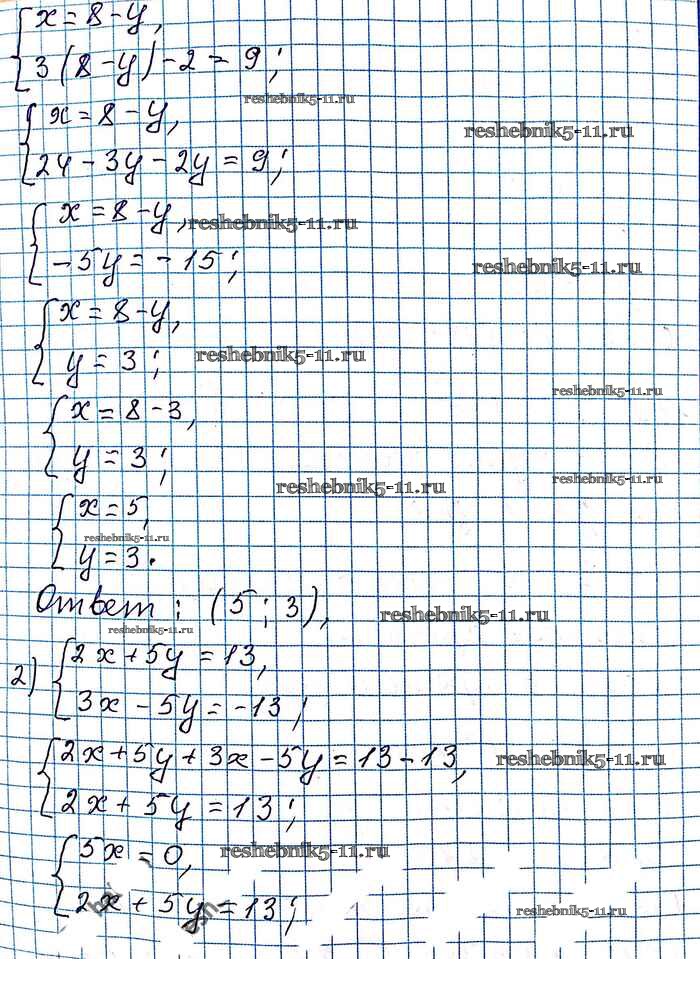 x = 8 - y,
3(8 - y) - 2 = 9;
reshebnik5-11.ru
x = 8 - y,
reshebnik5-11.ru
24 - 3y - 2y = 9;
x = 8 - y,
reshebnik5-11.ru
-5y = -15;
reshebnik5-11.ru
x = 8 - y,
y = 3;
reshebnik5-11.ru
reshebnik5-11.ru
x = 8 - 3,
y = 3;
reshebnik5-11.ru
reshebnik5-11.ru
x = 5,
reshebnik5-11.ru
y = 3.
Ответ: (5; 3),
reshebnik5-11.ru
reshebnik5-11.ru
2) 2x + 5y = 13,
3x - 5y = -13;
2x + 5y + 3x - 5y = 13 - 13,
reshebnik5-11.ru
2x + 5y = 13;
5x = 0,
reshebnik5-11.ru
2x + 5y = 13;
reshebnik5-11.ru